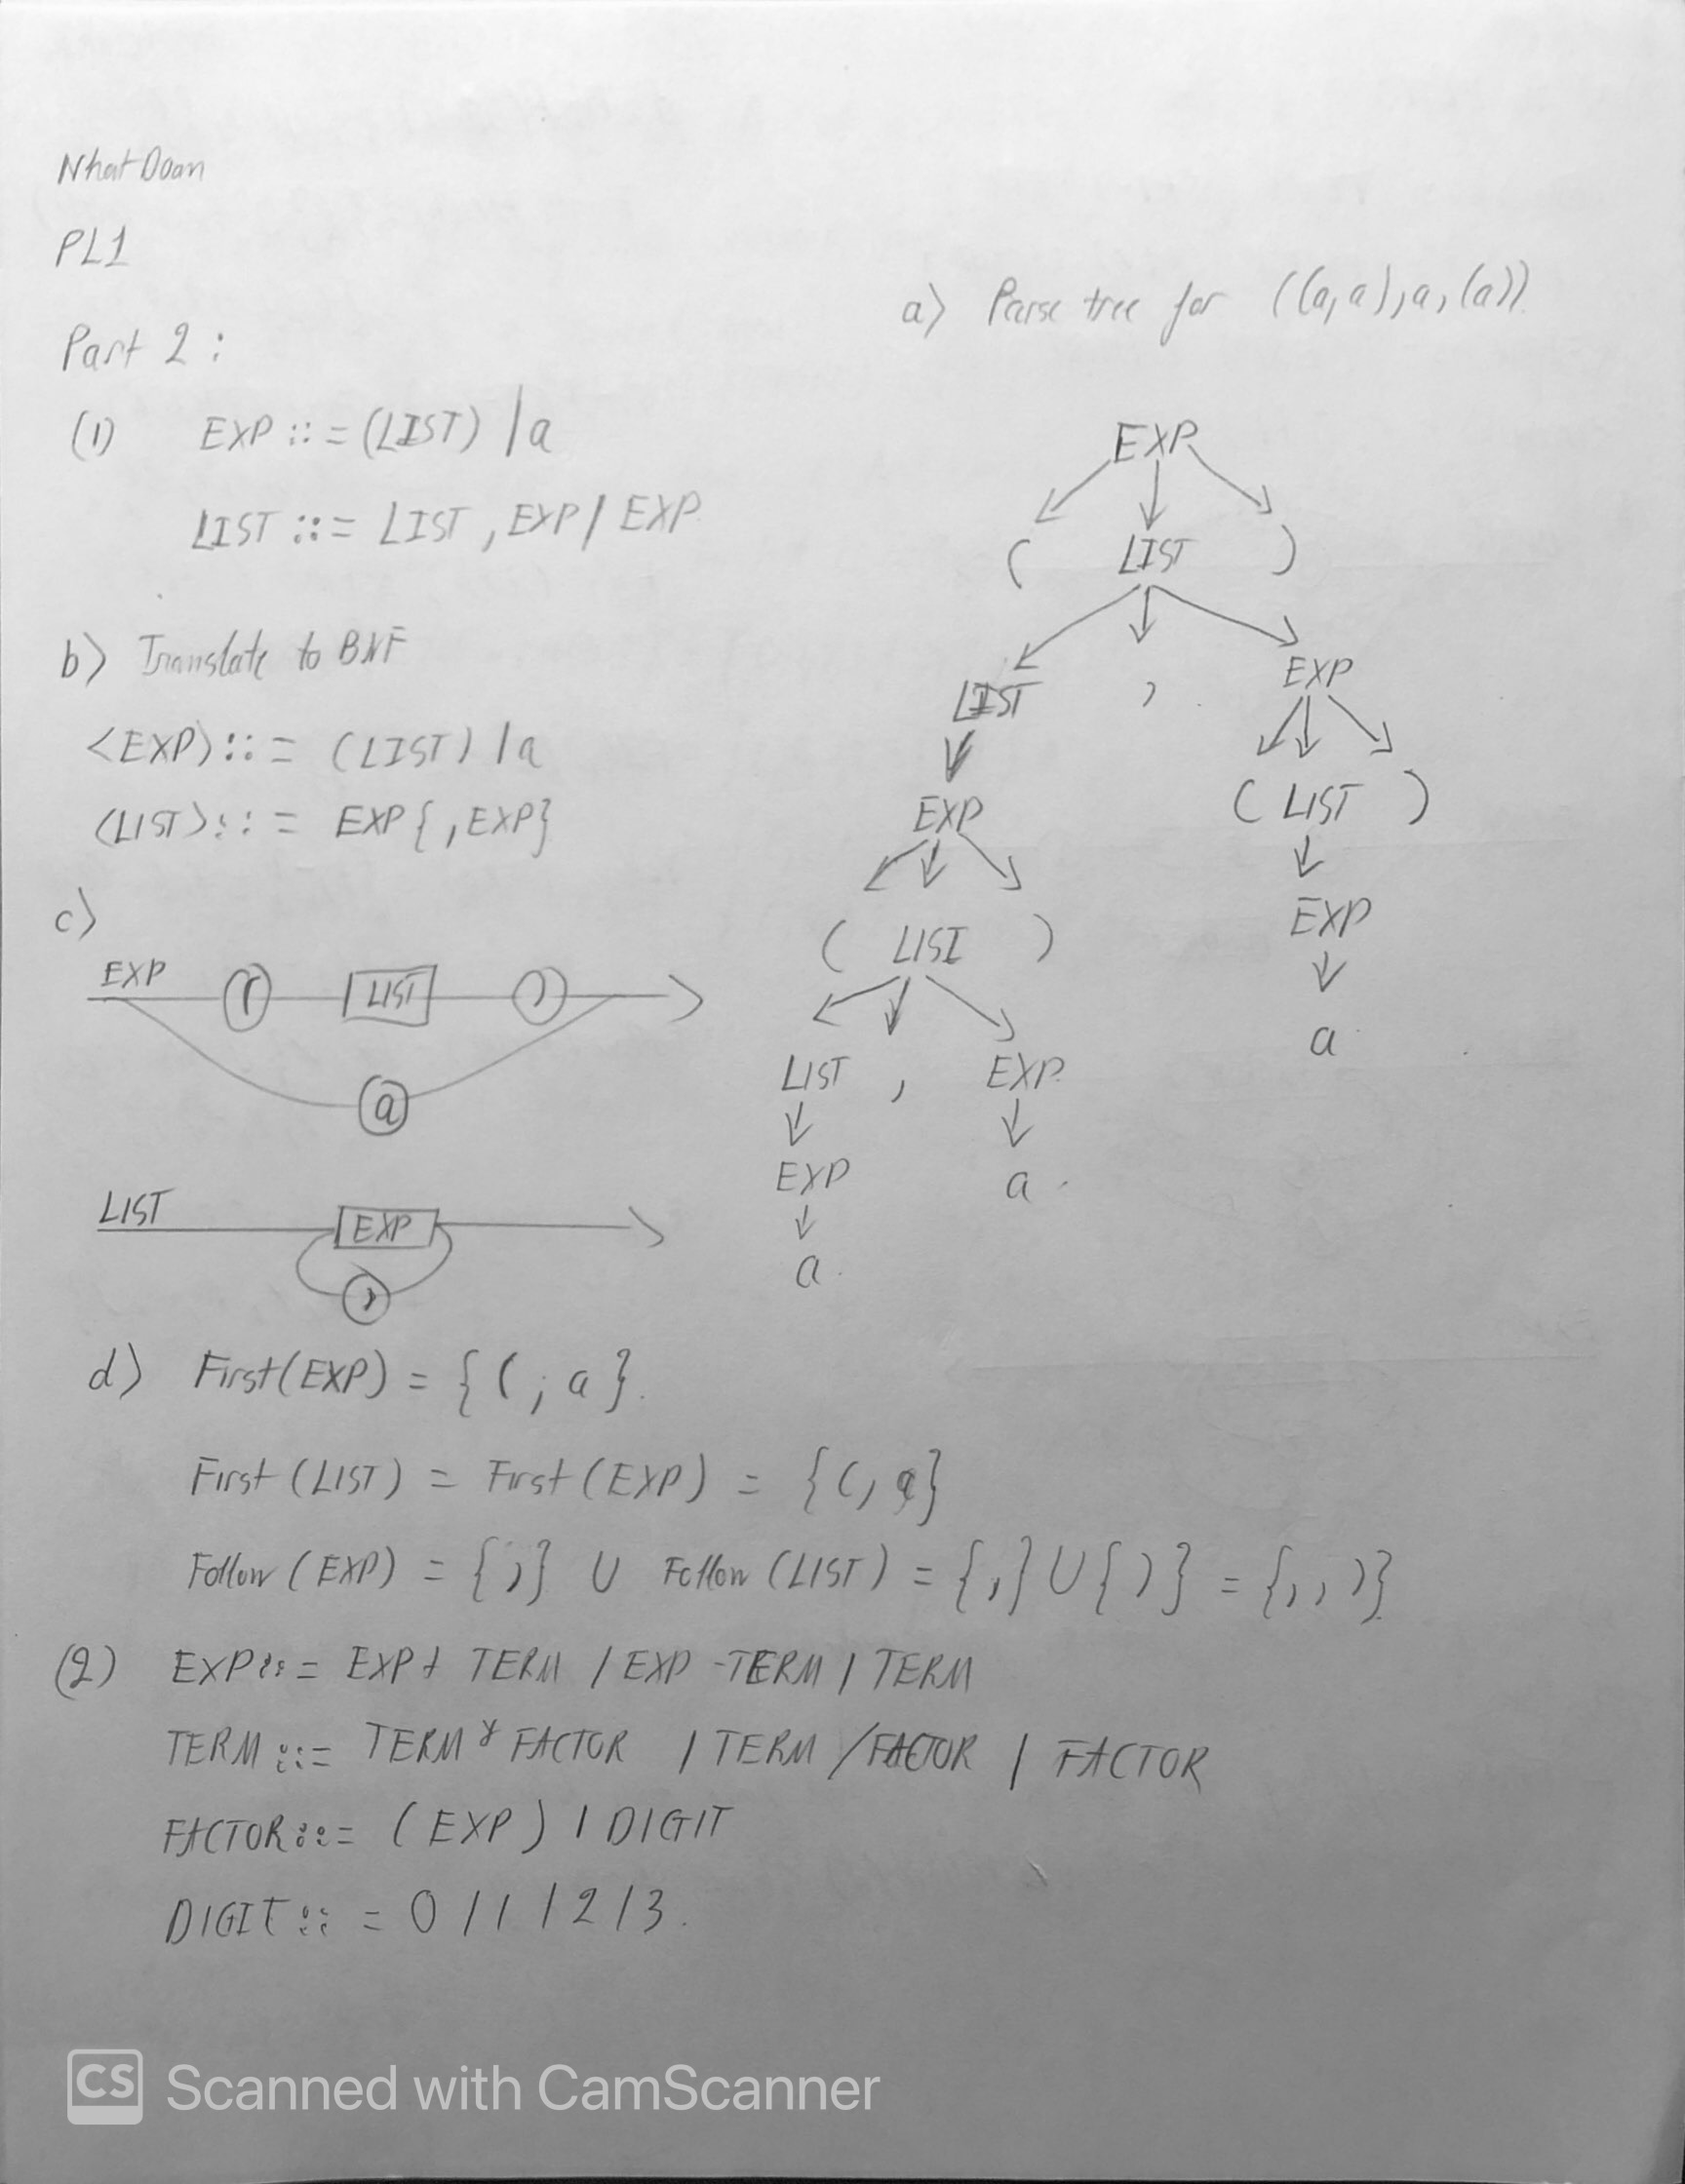 Nhat Doan
PL1
Part 2 :
(1) EXP ::= (LIST) | a
LIST ::= LIST , EXP | EXP
b) Translate to BNF
<EXP> ::= (LIST) | a
<LIST> ::= EXP { , EXP }
c)
EXP ( LIST )
a
LIST EXP
,
a) Parse tree for ((a,a),a,(a))
EXP
( LIST )
LIST , EXP
EXP ( LIST )
( LIST ) EXP
LIST , EXP a
EXP a
a
d) First(EXP) = { ( , a }.
First (LIST) = First (EXP) = { (, a }
Follow (EXP) = { , } U Follow (LIST) = { , } U { ) } = { , , ) }
(2) EXP ::= EXP + TERM | EXP - TERM | TERM
TERM ::= TERM * FACTOR | TERM / FACTOR | FACTOR
FACTOR ::= ( EXP ) | DIGIT
DIGIT ::= 0 | 1 | 2 | 3.
CS Scanned with CamScanner